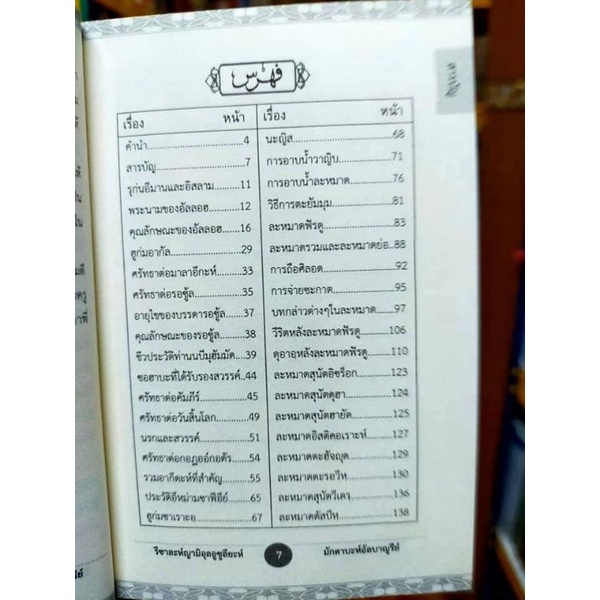 فهرس
สารบัญ
เรื่อง หน้า
คำนำ...............4
สารบัญ...............7
รุก่นอีมานและอิสลาม...............11
พระนามของอัลลอฮ...............12
คุณลักษณะของอัลลอฮ...............16
ฮูก่มอากัล...............29
ศรัทธาต่อมาลาอีกะห์...............33
ศรัทธาต่อรอซู้ล...............35
อายุไขของบรรดารอซู้ล...............37
คุณลักษณะของรอซู้ล...............38
ชีวประวัติท่านนบีมุฮัมมัด...............39
ซอฮาบะที่ได้รับรองสวรรค์...............44
ศรัทธาต่อคัมภีร์...............45
ศรัทธาต่อวันสิ้นโลก...............49
นรกและสวรรค์...............51
ศรัทธาต่อกอฎออ์กอดัร...............54
รวมอากีดะห์ที่สำคัญ...............55
ประวัติอีหม่ามชาฟีอีย์...............65
ฮูก่มซาเราะอ...............67
เรื่อง หน้า
นะญิส...............68
การอาบน้ำวาญิบ...............71
การอาบน้ำละหมาด...............76
วิธีการตะยัมมุม...............81
ละหมาดฟัรดู...............83
ละหมาดรวมและละหมาดย่อ...............88
การถือศิลอด...............92
การจ่ายซะกาต...............95
บทกล่าวต่างๆในละหมาด...............97
วีริดหลังละหมาดฟัรดู...............106
ดุอาอฺหลังละหมาดฟัรดู...............110
ละหมาดสุนัตอิชร็อก...............123
ละหมาดสุนัตดุฮา...............124
ละหมาดสุนัตฮายัต...............125
ละหมาดอิสติคอเราะห์...............127
ละหมาดตะฮัจญุด...............129
ละหมาดตะรอวีห...............130
ละหมาดสุนัตวีเตร...............136
ละหมาดตัสบีห...............138
รีซาละห์ญามิอุลอูซูลียะห์ 7 มักตาบะห์อัลบาญูรีย์